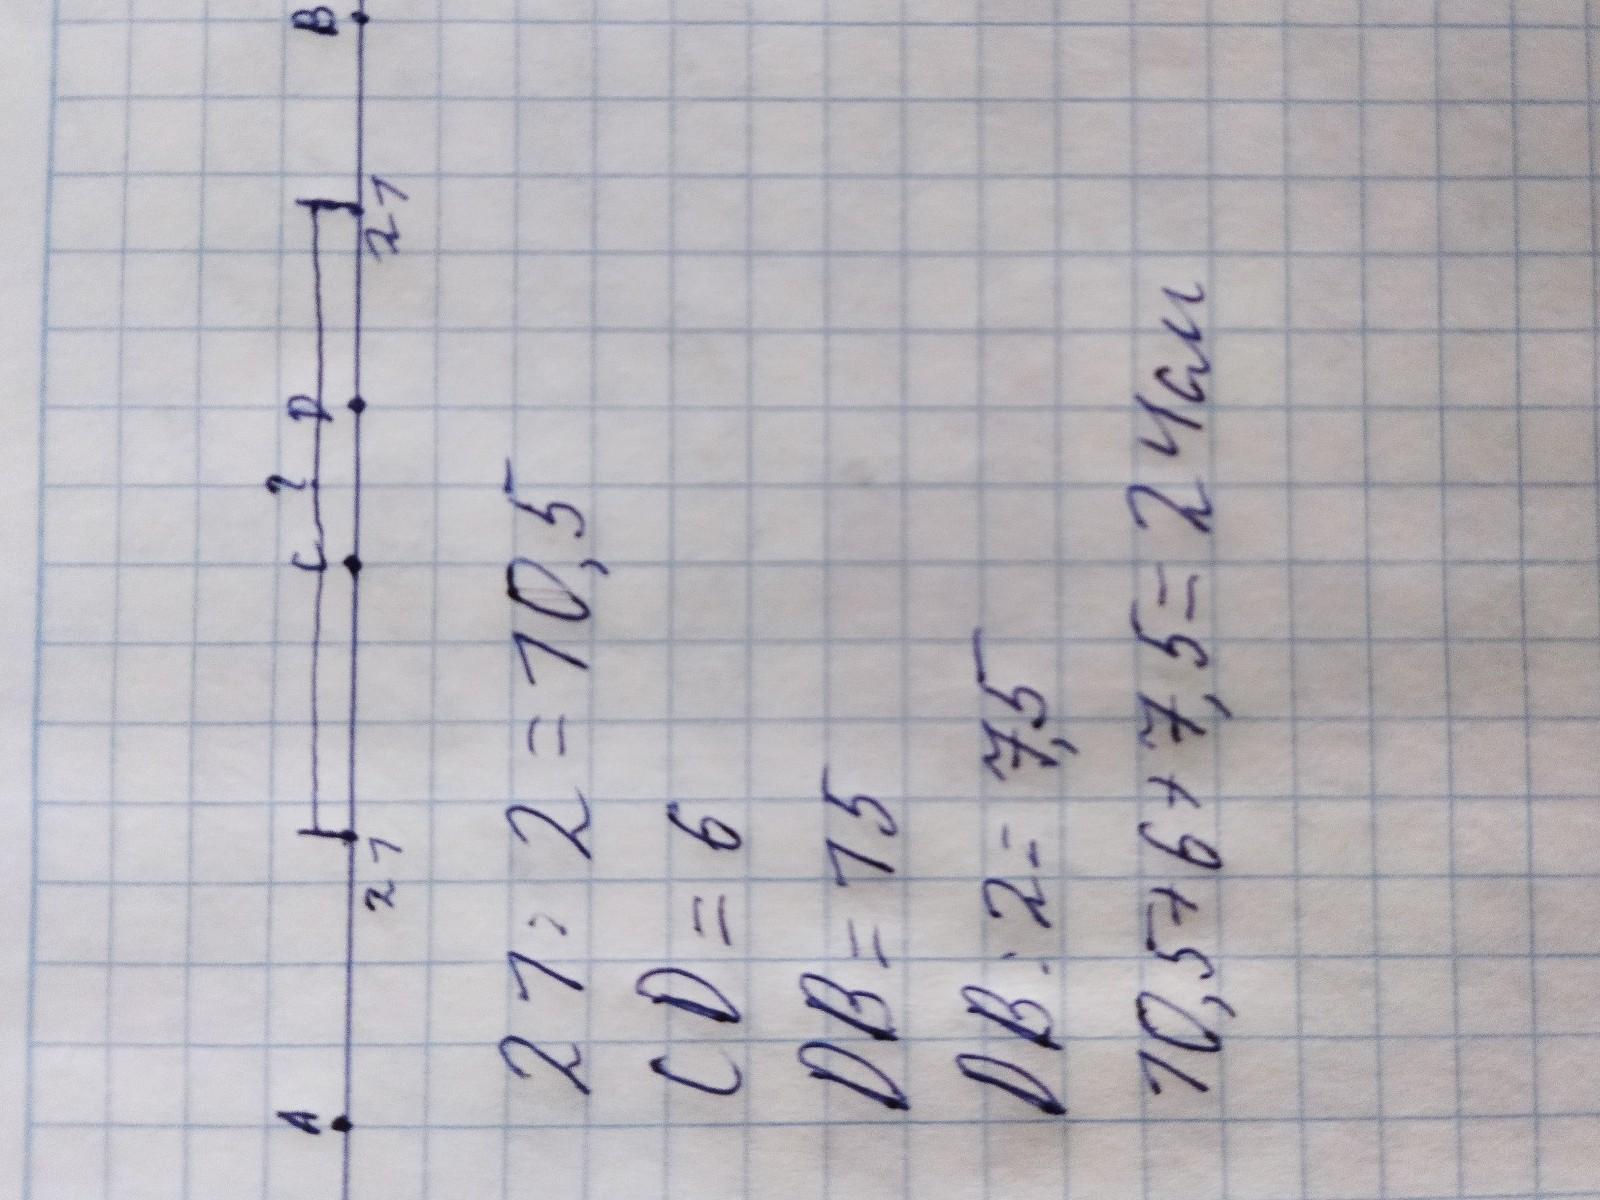 A C ? D B
21 21
21:2=10,5
CD=6
DB=15
DB:2=7,5
10,5+6+7,5=24см